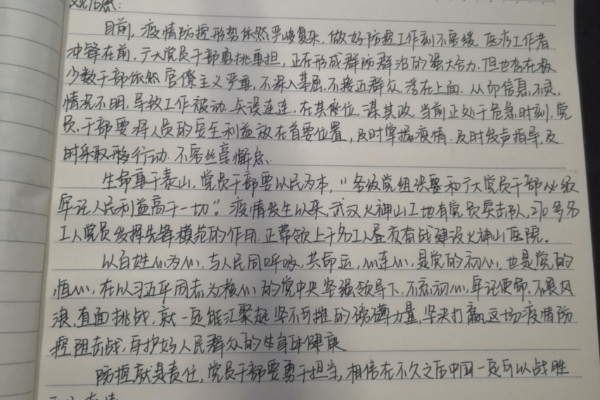 观后感:
目前,疫情防控形势依然严峻复杂,做好防控工作刻不容缓。医务工作者
冲锋在前,广大党员干部勇挑重担,正在形成群防群治的强大合力。但也存在极
少数干部依然官僚主义严重,不深入基层,不接近群众,浮在上面,从而信息不灵,
情况不明,导致工作被动,贻误连连,在其位谋其政,当前正处于危急时刻,党
员、干部要将人民的安全利益放在首要位置,及时掌握疫情,及时发声指导,及
时采取行动,不能丝毫懈怠。
生命重于泰山,党员干部要以民为本,“各级党组织要和广大党员干部必须
牢记人民利益高于一切”。疫情发生以来,武汉火神山工地有党员突击队,多名
工人党员发挥先锋模范的作用,正带领上千名工人昼夜奋战建设火神山医院。
以百姓心为心,与人民同呼吸,共命运,心连心,是党的初心,也是党的
恒心,在以习近平同志为核心的党中央坚强领导下,不忘初心,牢记使命,不畏风
浪,直面挑战,就一定能汇聚起坚不可摧的磅礴力量,坚决打赢这场疫情防
控阻击战,守护好人民群众的生命和健康
防控就是责任,党员干部要勇于担当,相信在不久之后中国一定可以战胜